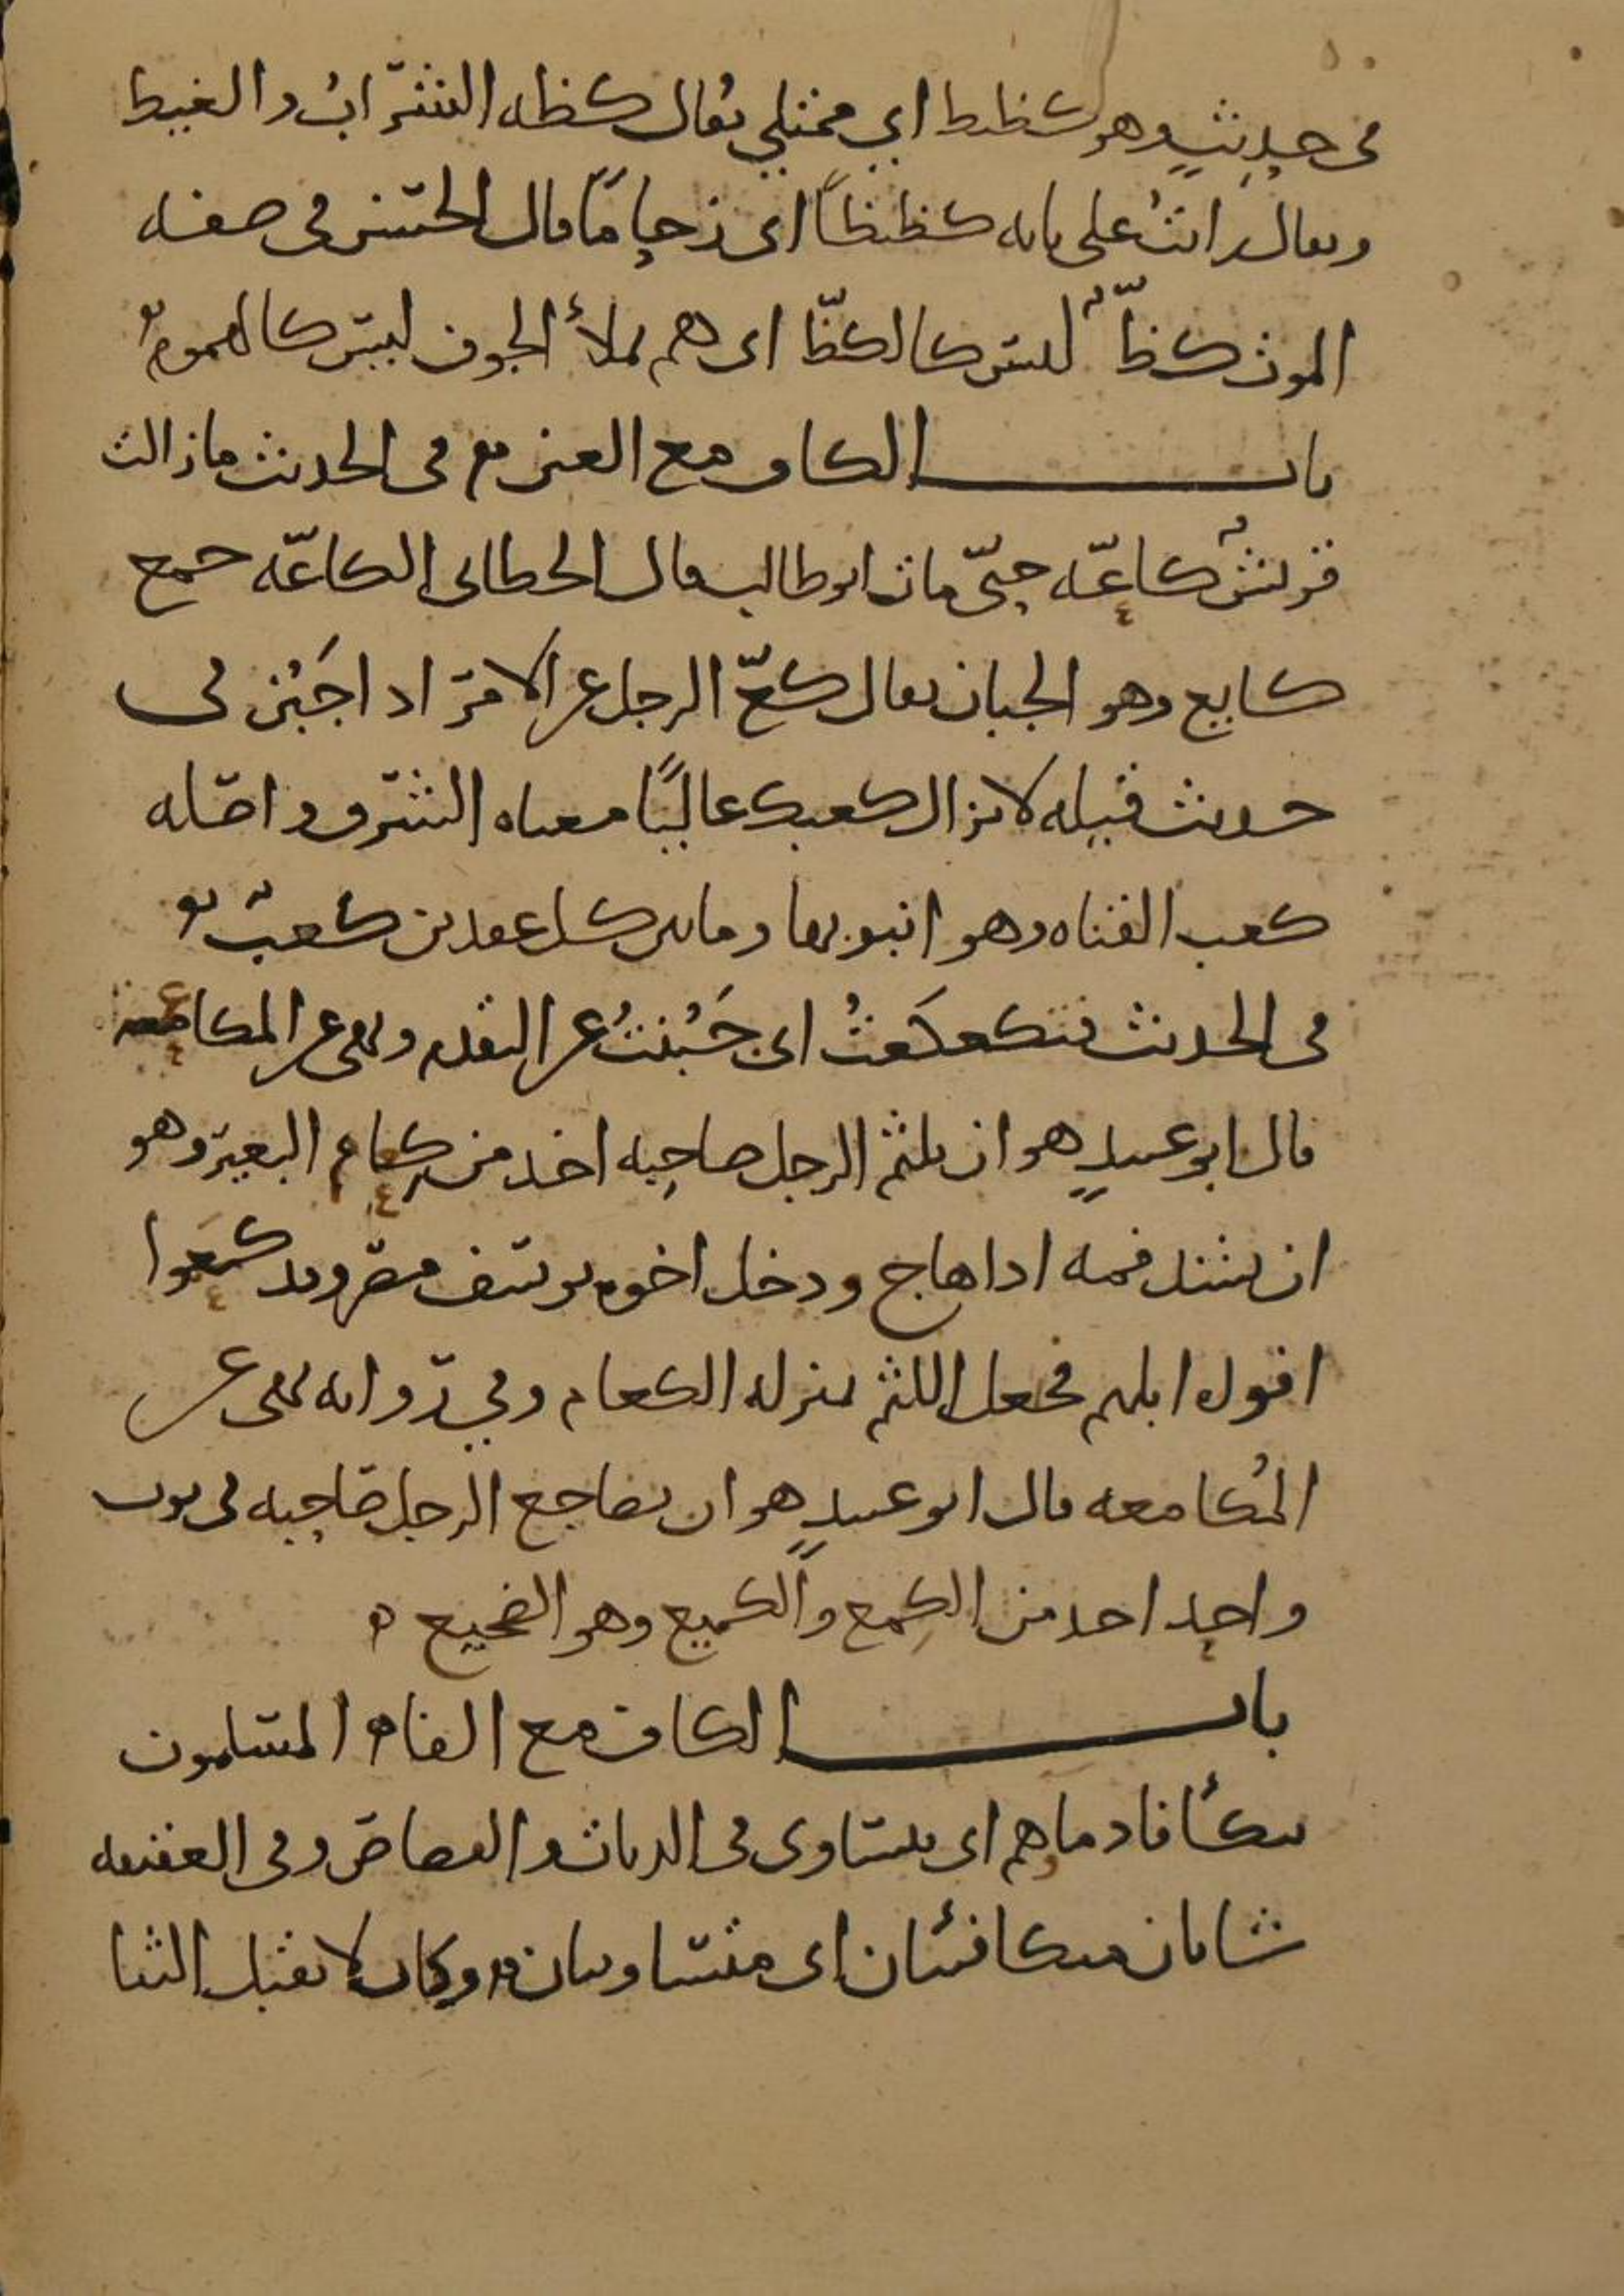 في حديث وهو كظيظ اي ممتلي يقال كظه الشراب والغيظ
ويقال رايت على بابه كظيظاً اى زحامًا قال الحسن في صفه
الموت كظّ ليس كالكظّ اى هم يملأ الجوف ليس كالهموم
باب الكاف مع العين في الحديث ما زالت
قريش كاعّه حتّى مات ابو طالب قال الخطابي الكاعّه جمع
كايع وهو الجبان يقال كعّ الرجل عن الامر اذا جَبُن في
حديث قيله لا يزال كعبك عاليًا معناه الشرف واصله
كعب القناه وهو انبوبها وما بين كل عقدين كعب
في الحديث فتكعكَعتُ اى جَبُنتُ عن التقدم ونهى عن المكاعمه
قال ابو عبيدٍ هو ان يلثم الرجل صاحِبه اخذ من كِعام البعير وهو
ان يشد فمه اذا هاج ودخل اخوه يوسف مصر وقد كعَموا
افواه ابلهم فجعل اللثم بمنزله الكعام وفي روايه نهى عن
المُكامعه قال ابو عبيدٍ هو ان يضاجع الرجل صاحِبه في ثوب
واحِد اخذ من الكِمع والكميع وهو الضجيع ه
باب الكاف مع الفاء المسلمون
تتكأفا دماهم اى يتساوى في الديات والقصاص وفي العقيقه
شاتان متكافئتان اى متساويتان وكان لا يقبل الثنا